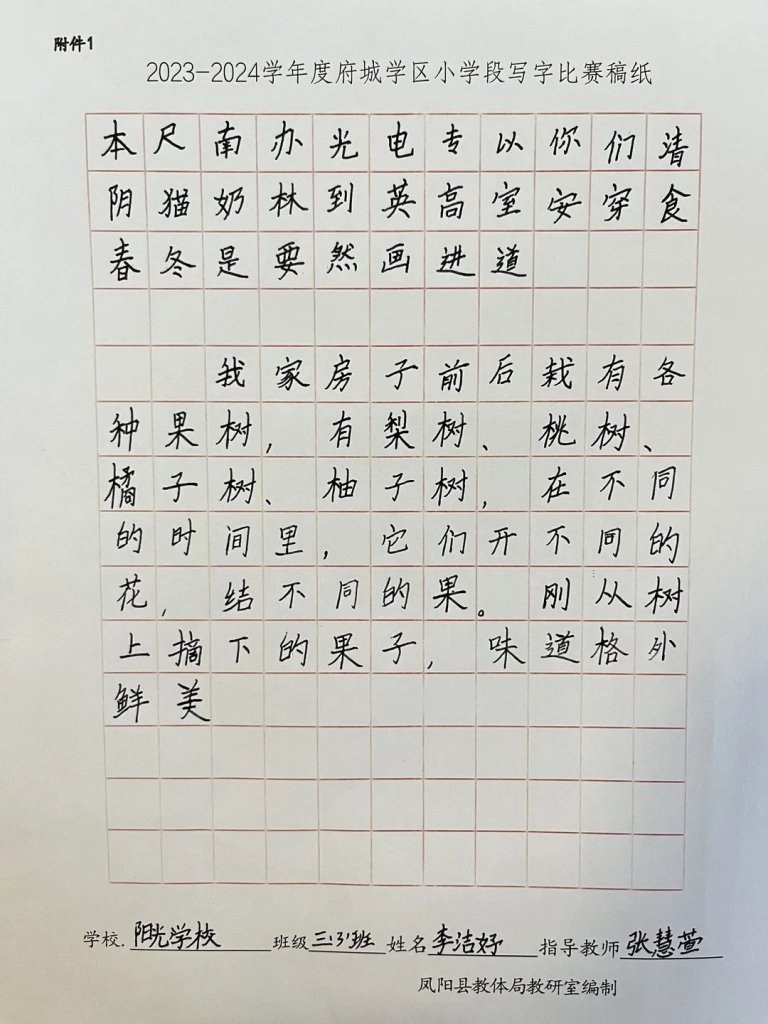 附件1
2023-2024学年度府城学区小学段写字比赛稿纸
本尺南办光电专以你们清
阴猫奶林到英高室安穿食
春冬是要然画进道
我家房子前后栽有各
种果树，有梨树、桃树、
橘子树、柚子树，在不同
的时间里，它们开不同的
花，结不同的果。刚从树
上摘下的果子，味道格外
鲜美
学校.阳光学校 班级三(3)班 姓名李洁妤 指导教师张慧萱
凤阳县教体局教研室编制